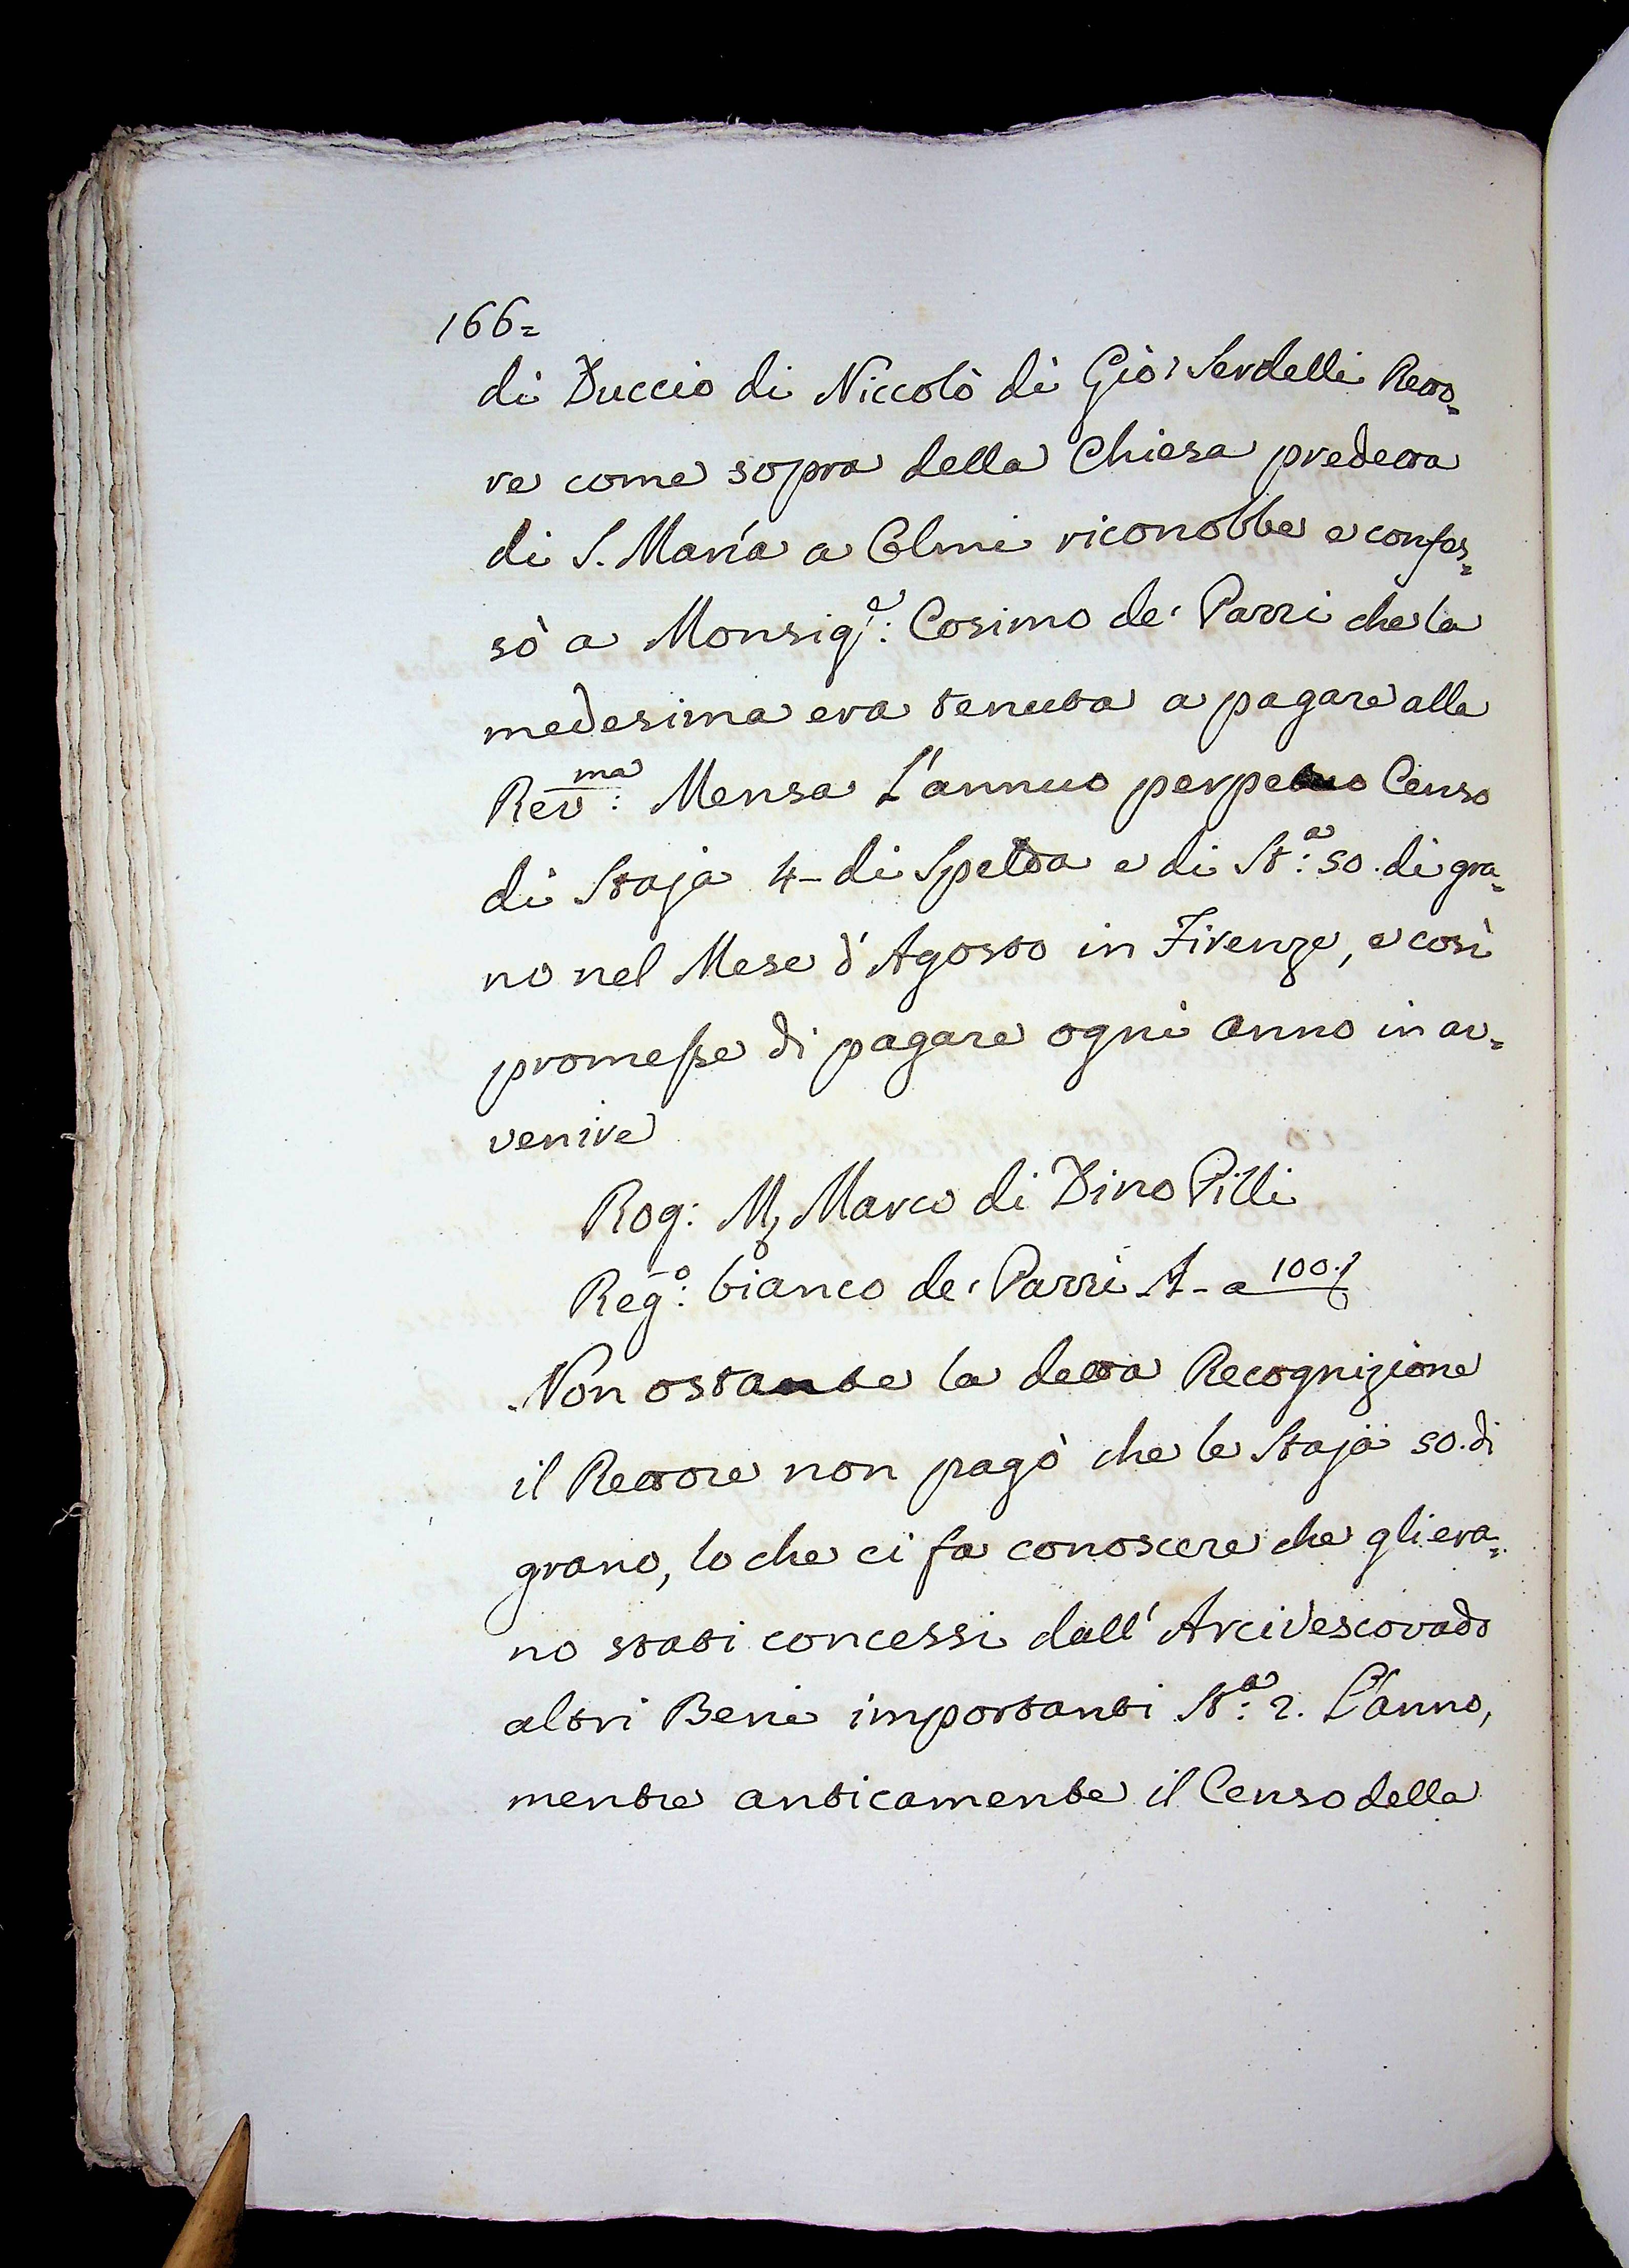 166=
di Duccio di Niccolò di Gio: Serdelli Retto=
re come sopra della Chiesa predetta
di S. Maria a Colmi riconobbe e confes=
sò a Monsig.e: Cosimo de' Pazzi che la
medesima era tenuta a pagare alla
Rev.ma: Mensa L'annuo perpetuo Censo
di Staja 4- di Spelta e di St.a: 50. di gra=
no nel Mese d'Agosto in Firenze, e così
promesse di pagare ogni anno in av=
venire
Rog: M, Marco di Dino Pilli
Reg.o: bianco de' Pazzi A- a 100.
Non ostante la detta Recognizione
il Rettore non pagò che le Staja 50. di
grano, lo che ci fa conoscere che gli era=
no stati concessi dall' Arcivescovado
altri Beni importanti St.a: 2. L'anno,
mentre anticamente il Censo della